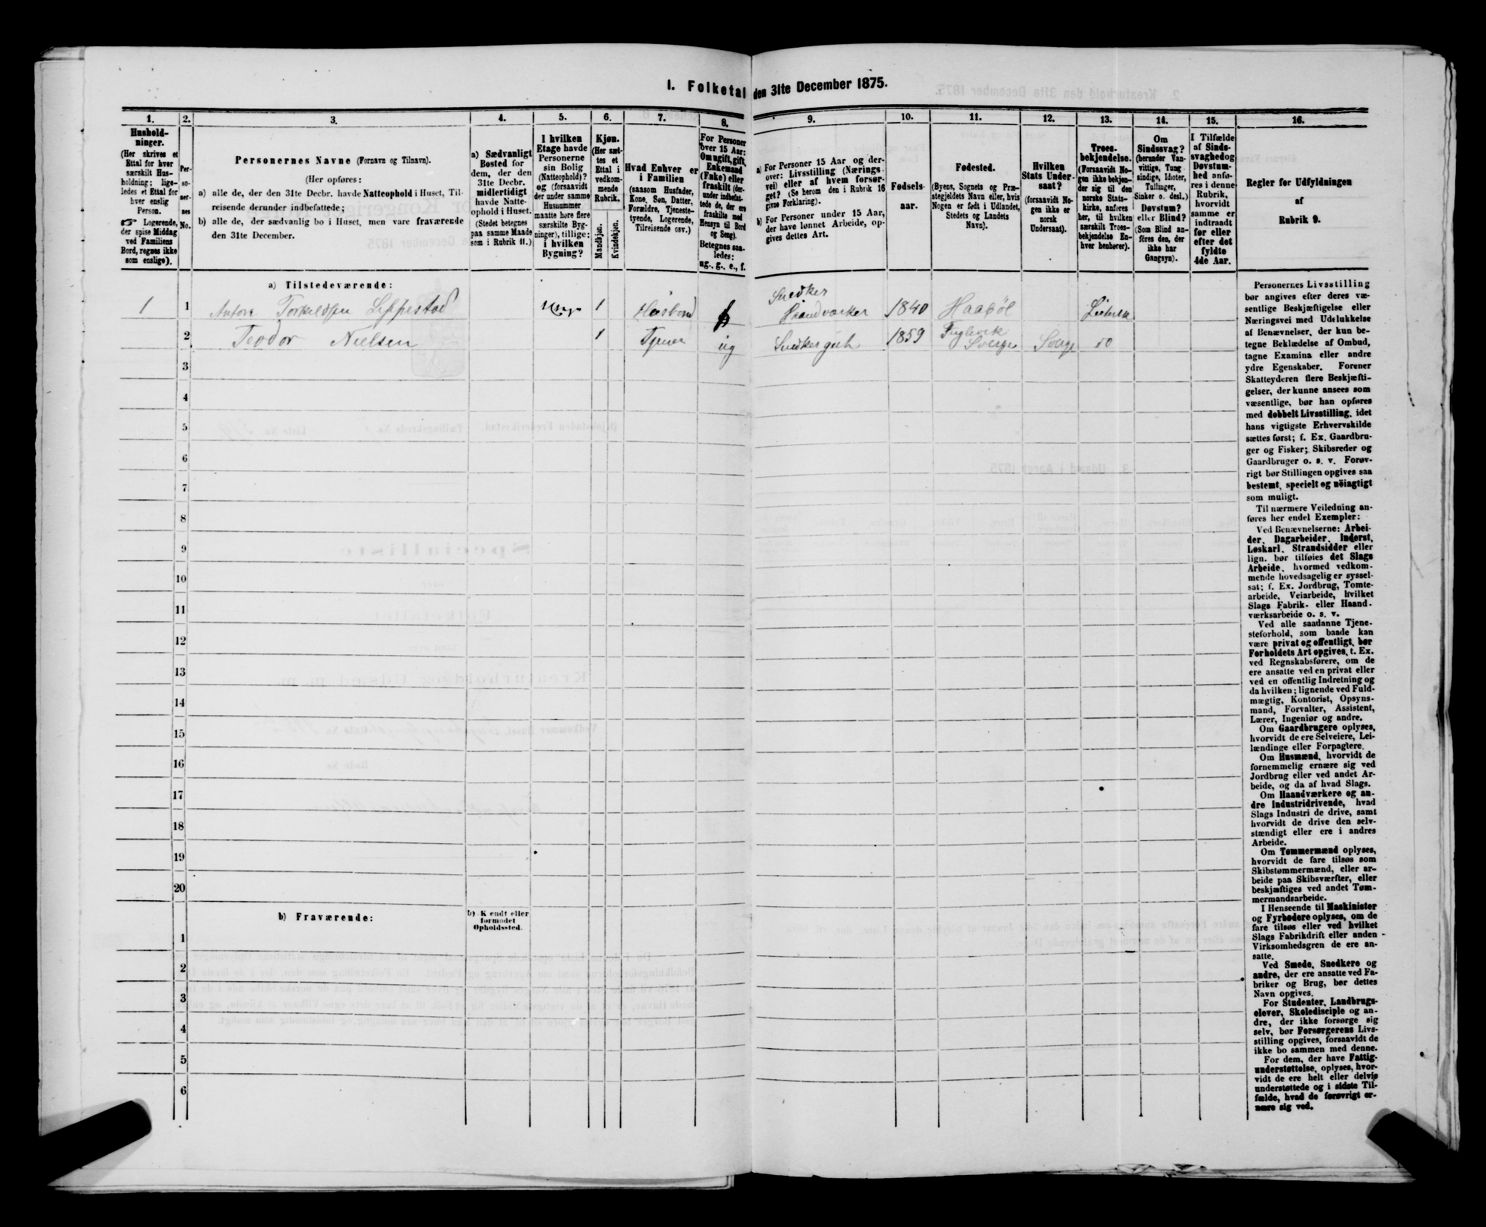 1. Folketal den 31te December 1875.
1.
2.
3.
4.
5.
6.
7.
8.
9.
10.
11.
12.
13.
14.
15.
16.
Hushold-
ninger.
(Her skrives et
Ettal for hver
særskilt Hus-
holdning; lige-
ledes et Ettal for
hver enslig
Person.
☞ Logerende,
der spise Middag
ved Familiens
Bord, regnes ikke
som enslige).
Per-
so-
ner-
nes
No.
Personernes Navne (Fornavn og Tilnavn).
(Her opføres:
a) alle de, der den 31te Decbr. havde Natteophold i Huset, Til-
reisende derunder indbefattede;
b) alle de, der sædvanlig bo i Huset, men vare fraværende
den 31te December.
a) Sædvanligt
Bosted for
dem, der den
31te Decbr.
midlertidigt
havde Natte-
ophold i Huset.
(Stedet betegnes
paa samme Maade
som i Rubrik 11.)
I hvilken
Etage havde
Personerne
sin Bolig
(Natteophold)?
og (forsaavidt
der under samme
Husnummer
maatte høre flere
særskilte Byg-
ninger), tillige:
i hvilken
Bygning?
Kjøn.
(Her sæt-
tes et
Ettal i
vedkom-
mende
Rubrik.
Mandkjøn.
Kvindekjøn.
Hvad Enhver er
i Familien
(saasom Husfader,
Kone, Søn, Datter,
Forældre, Tjeneste-
tyende, Logerende,
Tilreisende osv.)
For Personer
over 15 Aar:
Om ugift, gift,
Enkemand
(Enke) eller
fraskilt (der-
under indbefat-
tede de, der ere
fraskilte med
Hensyn til Bord
og Seng).
Betegnes saa-
ledes:
ug., g., e., f.
a) For Personer 15 Aar og der-
over: Livsstilling (Nærings-
vei) eller af hvem forsør-
get? (Se herom den i Rubrik 16
givne Forklaring).
b) For Personer under 15 Aar,
der have lønnet Arbeide, op-
gives dettes Art.
Fødsels-
aar.
Fødested.
(Byens, Sognets og Præ-
stegjeldets Navn eller, hvis
Nogen er født i Udlandet,
Stedets og Landets
Navn).
Hvilken
Stats Under-
saat?
(forsaavidt No-
gen ikke er
norsk
Undersaat).
Troes-
bekjendelse.
(Forsaavidt No-
gen ikke bekjen-
der sig til den
norske Stats-
kirke, anføres
her, til hvilken
særskilt Troes-
bekjendelse En-
hver henhører).
Om
Sindssvag?
(herunder Van-
vittige, Tung-
sindige, Idioter,
Tullinger,
Sinker o. desl.)
Døvstum?
eller Blind?
(Som Blind an-
føres den, der
ikke har
Gangsyn).
I Tilfælde
af Sinds-
svaghed og
Døvstum-
hed anfø-
res i denne
Rubrik,
hvorvidt
samme er
indtraadt
før eller
efter det
fyldte
4de Aar.
Regler for Udfyldningen
af
Rubrik 9.
a) Tilstedeværende:
1 1 Anton Torkildsen Lippestad 1 Husbond Snedker Haandværker 1840 Haabøl
2 Teodor Nielsen 1 Tjener ug Snedker 1859 Fuglevik Sverge Sverge do
3
4
5
6
7
8
9
10
11
12
13
14
15
16
17
18
19
20
b) Fraværende:
b) Kjendt eller
formodet
Opholdssted.
1
2
3
4
5
6
Personernes Livsstilling
bør angives efter deres væ-
sentlige Beskjæftigelse eller
Næringsvei med Udelukkelse
af Benævnelser, der kun be-
tegne Beklædelse af Ombud,
tagne Examina eller andre
ydre Egenskaber. Forener
Skatteyderen flere Beskjæfti-
gelser, der kunne ansees som
væsentlige, bør han opføres
med dobbelt Livsstilling, idet
hans vigtigste Erhvervskilde
sættes først; f. Ex. Gaardbru-
ger og Fisker; Skibsreder og
Gaardbruger o. s. v. Forøv-
rigt bør Stillingen opgives saa
bestemt, specielt og nøiagtigt
som muligt.
Til nærmere Veiledning an-
føres her endel Exempler:
Ved Benævnelserne: Arbei-
der, Dagarbeider, Inderst,
Løskarl, Strandsidder eller
lign. bør tilføies det Slags
Arbeide, hvormed vedkom-
mende hovedsagelig er syssel-
sat; f. Ex. Jordbrug, Tomte-
arbeide, Veiarbeide, hvilket
Slags Fabrik- eller Haand-
værksarbeide o. s. v.
Ved alle saadanne Tjene-
steforhold, som baade kan
være privat og offentligt, bør
Forholdets Art opgives, t. Ex.
ved Regnskabsførere, om de
ere ansatte ved en privat eller
ved en offentlig Indretning og
da hvilken; lignende ved Fuld-
mægtig, Kontorist, Opsyns-
mand, Forvalter, Assistent,
Lærer, Ingeniør og andre.
Om Gaardbrugere oplyses,
hvorvidt de ere Selveiere, Lei-
lændinge eller Forpagtere.
Om Husmænd, hvorvidt de
fornemmelig ernære sig ved
Jordbrug eller ved andet Ar-
beide, og da af hvad Slags.
Om Haandværkere og an-
dre Industridrivende, hvad
Slags Industri de drive, samt
hvorvidt de drive den selv-
stændigt eller ere i andres
Arbeide.
Om Tømmermænd oplyses,
hvorvidt de fare tilsøs som
Skibstømmermænd, eller ar-
beide paa Skibsværfter, eller
beskjæftiges ved andet Tøm-
mermandsarbeide.
I Henseende til Maskinister
og Fyrbødere oplyses, om de
fare tilsøs eller ved hvilket
Slags Fabrikdrift eller anden
Virksomhedsgren de ere an-
satte.
Ved Smede, Snedkere og
andre, der ere ansatte ved Fa-
briker og Brug, bør dettes
Navn opgives.
For Studenter, Landbrugs-
elever, Skoledisciple og an-
dre, der ikke forsørge sig
selv, bør Forsørgerens Livs-
stilling opgives, forsaavidt de
ikke bo sammen med denne.
For dem, der have Fattig-
understøttelse, oplyses, hvor-
vidt de ere helt eller delvis
understøttede og i sidste Til-
fælde, hvad de forøvrigt er-
nære sig ved.